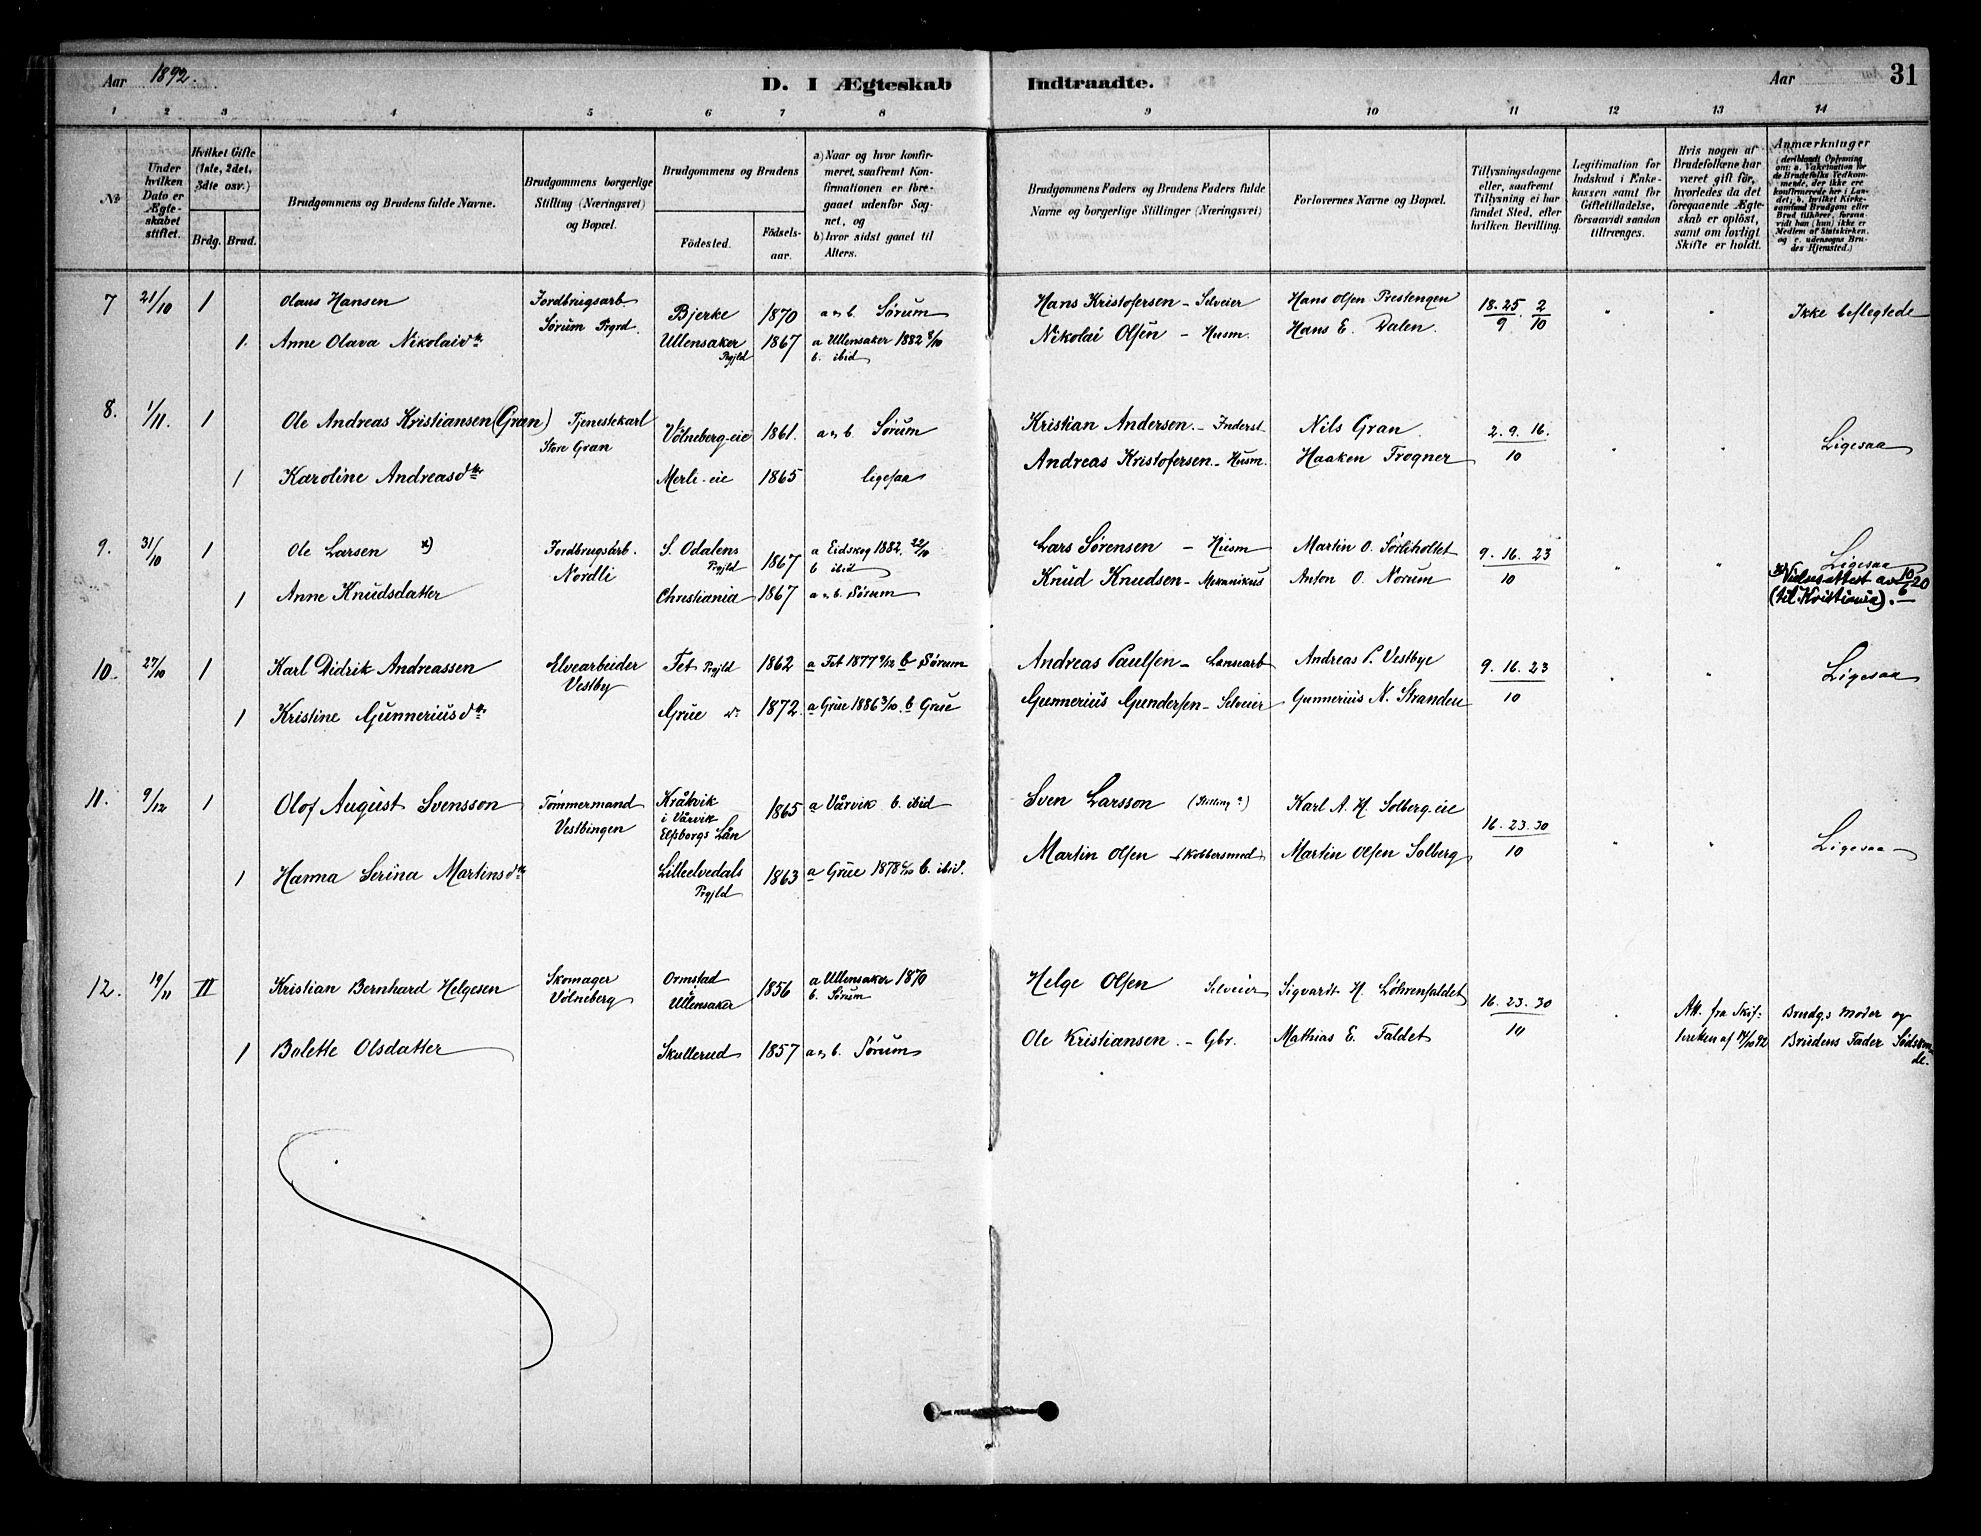 Aar 1892. D. I Ægteskab Indtraadte. Aar 31
1 2 3 4 5 6 7 8 9 10 11 12 13 14
№
Under hvilken Dato er Ægteskabet stiftet.
Hvilket Gifte (1ste, 2det, 3dte osv.)
Brdg. Brud.
Brudgommens og Brudens fulde Navne.
Brudgommens borgerlige Stilling (Næringsvei) og Bopæl.
Brudgommens og Brudens
Födested. Födselsaar.
a) Naar og hvor konfirmeret, saafremt Konfirmationen er foregaaet udenfor Sognet, og
b) hvor sidst gaaet til Alters.
Brudgommens Faders og Brudens Faders fulde Navne og borgerlige Stillinger (Næringsvei)
Forlovernes Navne og Bopæl.
Tillysningsdagene eller, saafremt Tillysning ei har fundet Sted, efter hvilken Bevilling.
Legitimation for Indskud i Enkekassen samt for Giftetilladelse, forsaavidt saadan tiltrænges.
Hvis nogen af Brudefolkene har været gift før, hvorledes da det foregaaende Ægteskab er oplöst, samt om lovligt Skifte er holdt.
Anmærkninger (deriblandt Oplysning om: a. Vakcination for de Brudefolks Vedkommende, der ikke ere konfirmerede her i Landet; b. hvilket Kirkesamfund Brudgom eller Brud tilhører, forsaavidt han (hun) ikke er Medlem af Statskirken, og c. udensogns Brudes Hjemsted.)
7 21/10 1 Olaus Hansen Jordbrugsarb Sørum Prgrd. Bjerke 1870 a & b. Sørum Hans Kristofersen - Selveier Hans Olsen Prestengen 18. 25/9. 2/10 " " Ikke beslegtede
1. Anne Olava Nikolaidtr Ullensaker Prgjld 1867 a Ullensaker 1882 8/10 b. ibid Nikolai Olsen - Husm. Hans E. Dalen.
8. 1/11. 1 Ole Andreas Kristiansen (Gran) Tjenestekarl Store Gran Völneberg-eie 1861. a & b. Sørum Kristian Andersen. - Inderst Nils Gran 2. 9. 16./10 " " Ligesaa
1 Karoline Andreasdtr Merli-eie 1865 ligesaa Andreas Kristofersen - Husm. Haaken Trogner
9. 31/10 1 Ole Larsen x) Jordbrugsarb. Nordli S. Odalens Prgjld 1867 a Eidskog 1882. 22/10 b ibid Lars Sørensen - Husm Martin O. Sørliholtet 9. 16. 23/10 Ligesaa
1 Anne Knudsdatter Christiania 1867 a & b. Sørum Knud Knudsen - Mekanikus Anton O. Norum x) Vielsesattest av 10/6 20 (til Kristiania).
10. 27/10 1 Karl Didrik Andreassen Elvearbeider Vestby Fet Prgjld 1862 a Fet 1877 9/12 b Sørum Andreas Paulsen - Lansearb Andreas P. Vestbye 9. 16. 23/10 " " Ligesaa
1 Kristine Gunneriusdtr Grue do 1872. a Grue 1886 3/10. b Grue Gunnerius Gundersen - Selveier Gunnerius N. Stranden
11. 9/12 1 Olof August Svensson Tømmermand Vestbingen Kråkvik i Vårvik Elfsborgs Län 1865 a Vårvik b. ibid Sven Larsson (Stilling?) Karl A. H. Solberg-eie 16. 23. 30/10 " " Ligesaa
1 Hanna Serina Martinsdtr Lilleelvedals Prgjld 1863 a Grue 1878 b. ibid. Martin Olsen (Kobbersmed) Martin Olsen Solberg
12. 19/11 II Kristian Bernhard Helgesen Skomager Völneberg Ormstad i Ullensaker 1856 a Ullensaker 1870 b. Sørum Helge Olsen Selveier Sigvardt H. Löhrenfaldet 16. 23. 30/10 Att. fra Skifteretten af 14/10 92 Brudgs Moder og Brudens Fader Södskende.
1 Bolette Olsdatter Skullerud 1857 a & b. Sørum Ole Kristiansen. - Gbr. Mathias E. Faldet